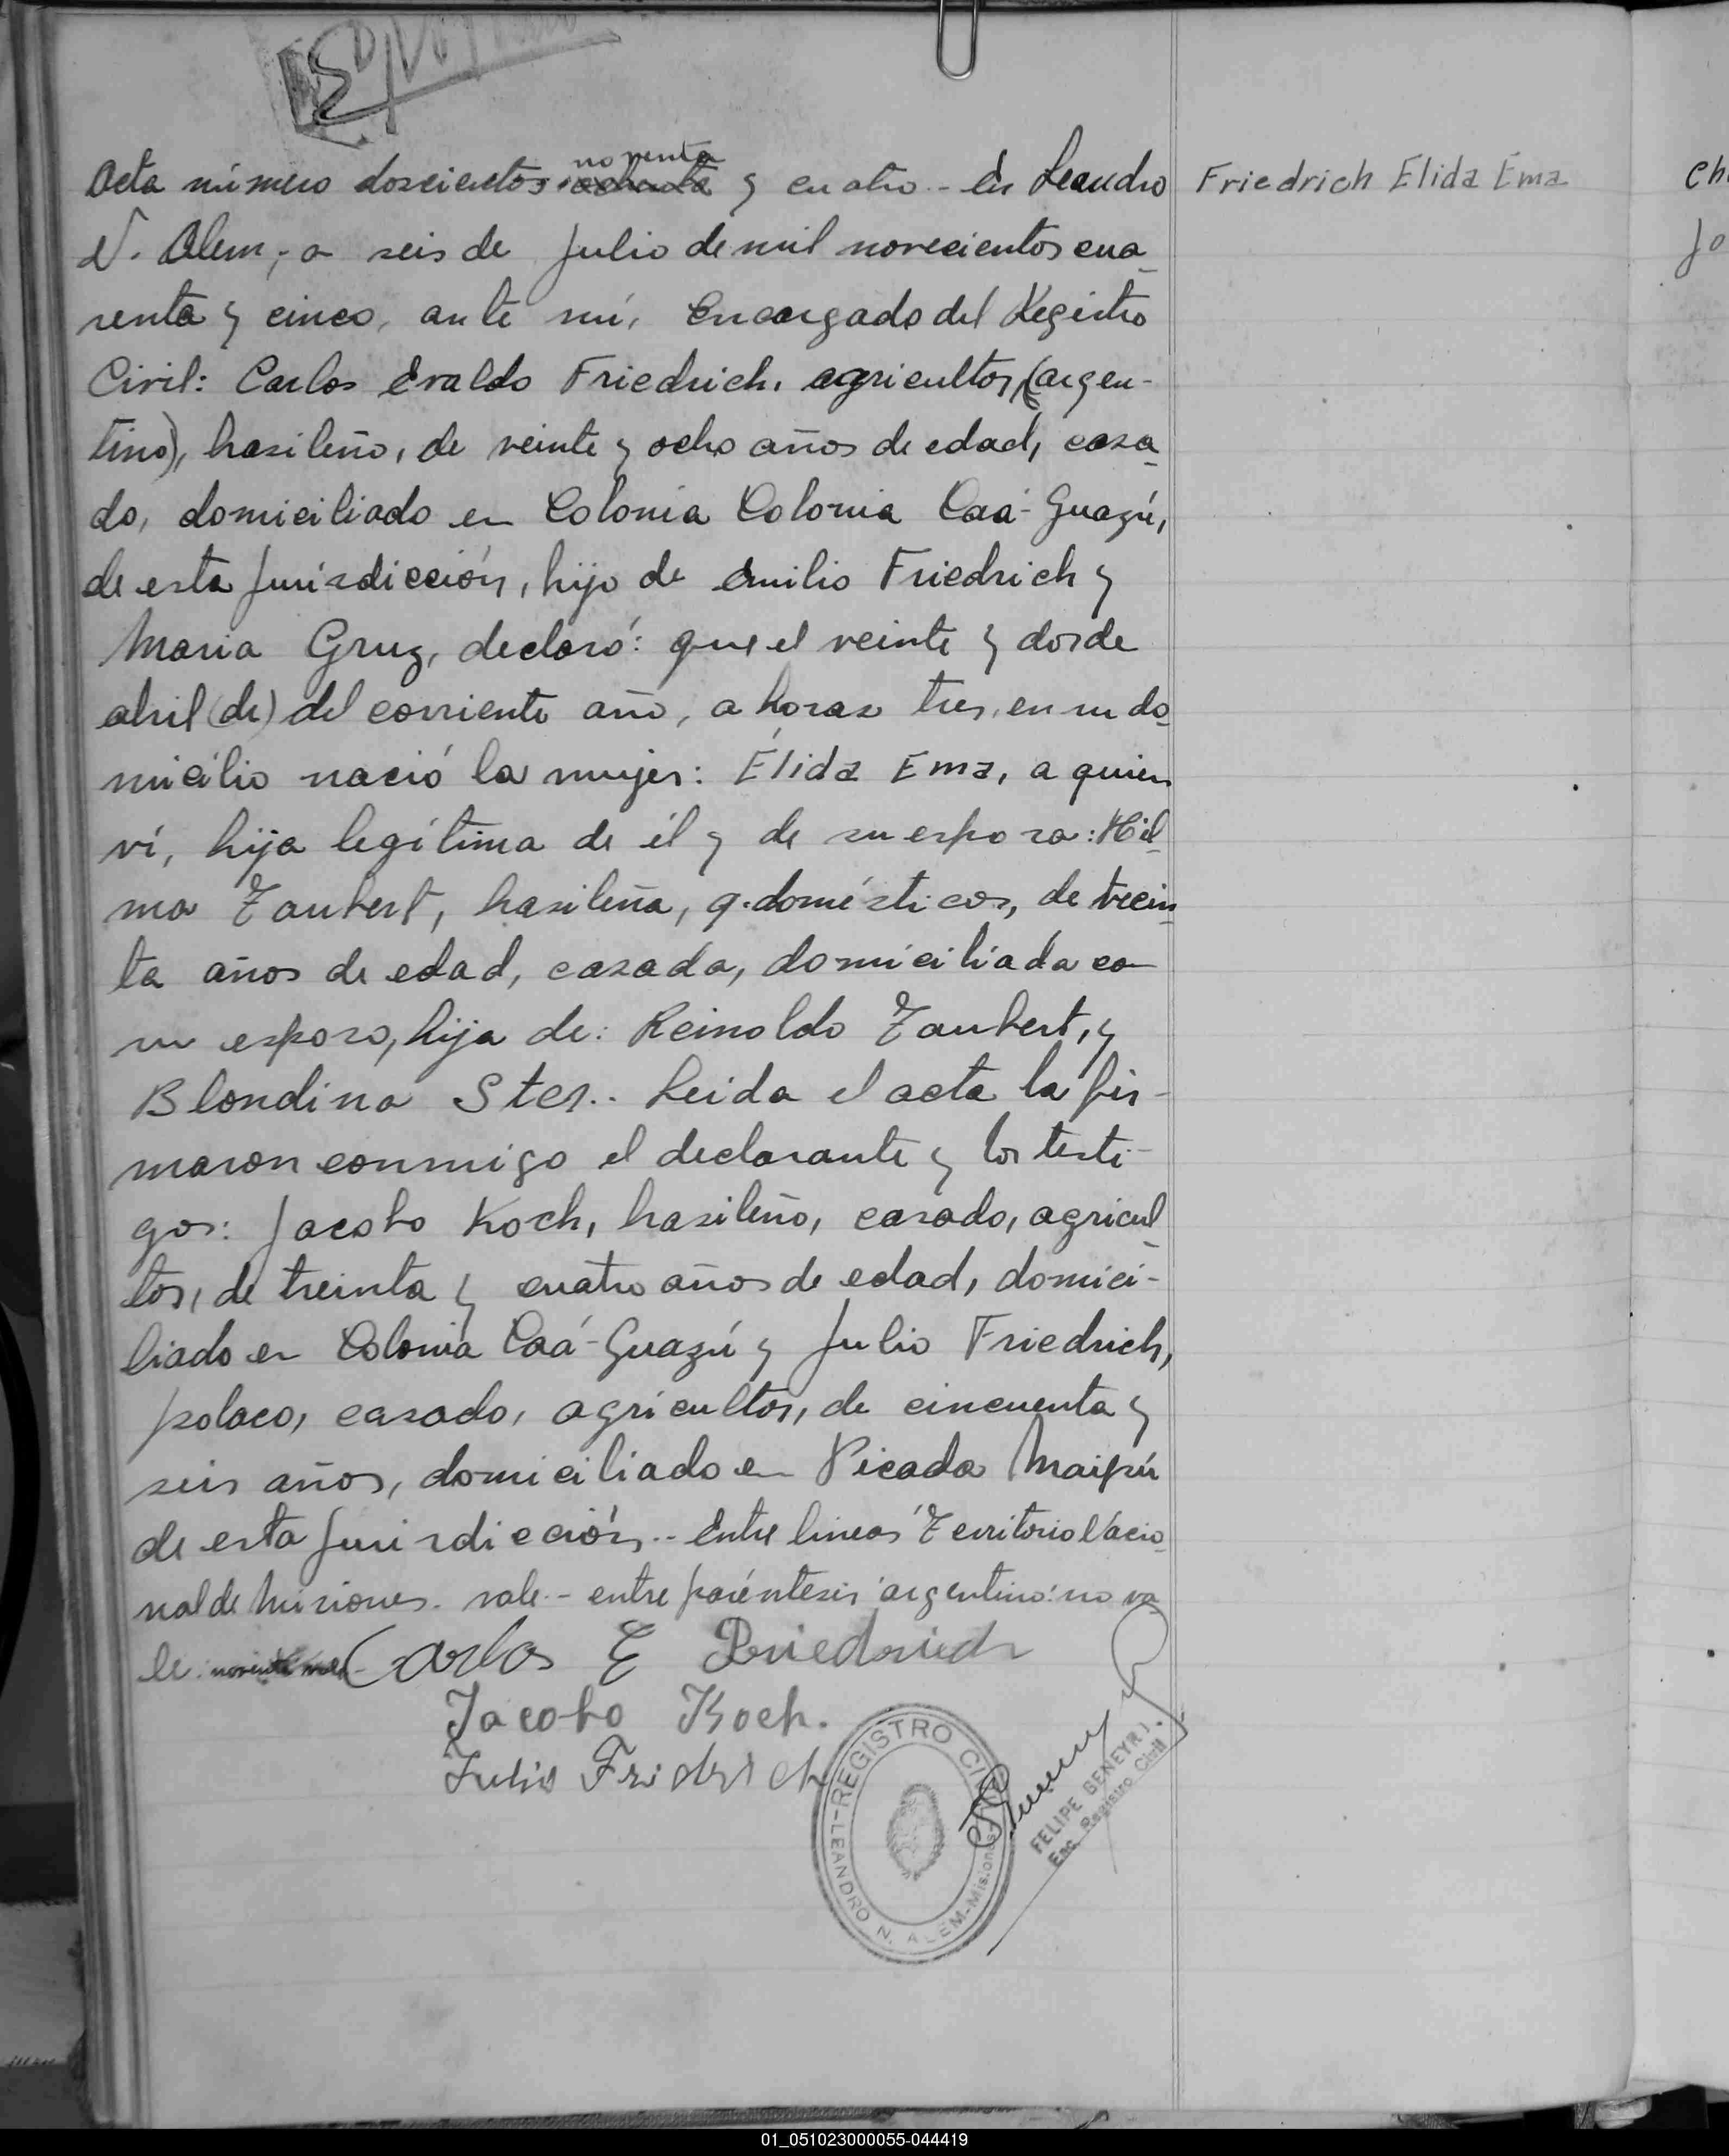 noventa
Acta número doscientos ochenta y cuatro.- En Leandro
N. Alem, a seis de Julio de mil novecientos cua-
renta y cinco, ante mí, Encargado del Registro
Civil: Carlos Evaldo Friedrich, agricultor, (argen-
tino), brasileño, de veinte y ocho años de edad, casa-
do, domiciliado en Colonia Colonia Caá-Guazú,
de esta Jurisdicción, hijo de Emilio Friedrich y
Maria Gruz, declaró: que el veinte y dos de
abril (de) del corriente año, a horas tres, en su do-
micilio nació la mujer: Élida Ema, a quien
ví, hija legítima de él y de su esposa: Hil-
ma Taubert, brasileña, q. domésticos, de trein-
ta años de edad, casada, domiciliada con
su esposo, hija de: Reinoldo Taubert, y
Blondina Ster.- Leida el acta la fir-
maron conmigo el declarante y los testi-
gos: Jacobo Koch, brasileño, casado, agricul-
tor, de treinta y cuatro años de edad, domici-
liado en Colonia Caá-Guazú y Julio Friedrich,
polaco, casado, agricultor, de cincuenta y
seis años, domiciliado en Picada Maipú
de esta Jurisdicción.- Entre lineas "Territorio Nacio-
nal de Misiones. vale.- entre paréntesis "argentino": no va-
le: noventa vale
Carlos E Friedrich
Jacobo Koch.
Julio Fridrich
REGISTRO CIVIL
LEANDRO N. ALEM-Misiones
FELIPE GENEYRI.
Enc. Registro Civil
Friedrich Elida Ema
Ch
Jo
01_051023000055-044419